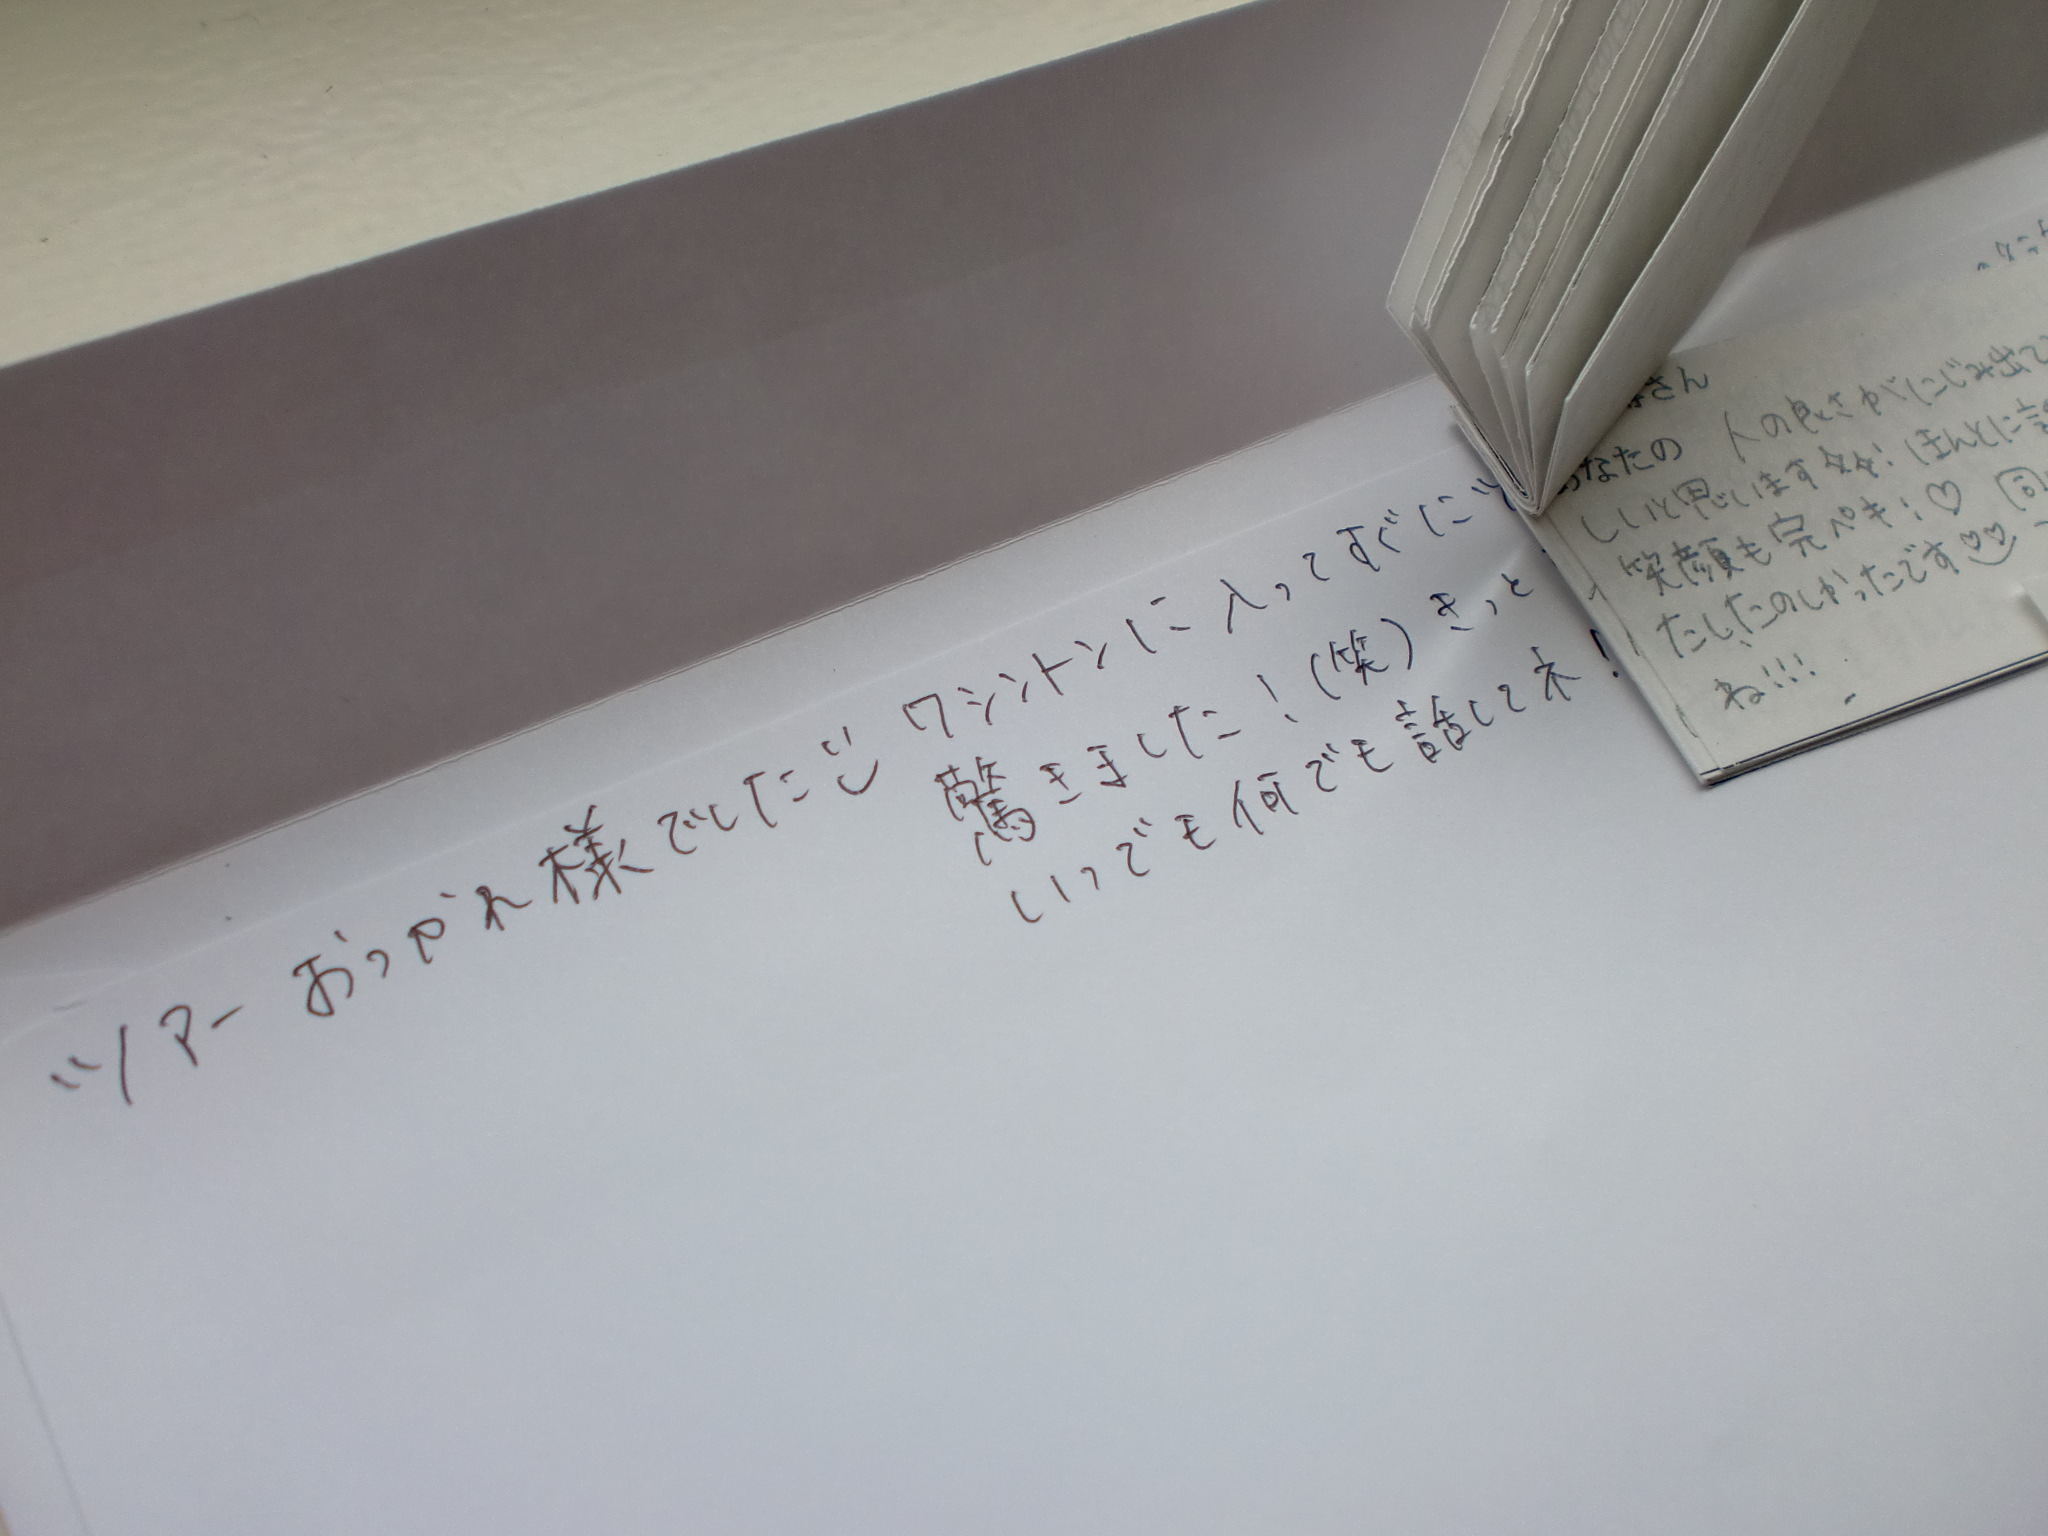 ツアーおつかれ様でした ワシントンに入ってすぐに
驚きました!(笑)きっと
いつでも何でも話してネ!
さん
あなたの 人の良さがにじみ出て
しいと思います ほんとに
笑顔も完ペキ!♡
たしたのしかったです♡♡
ね!!!